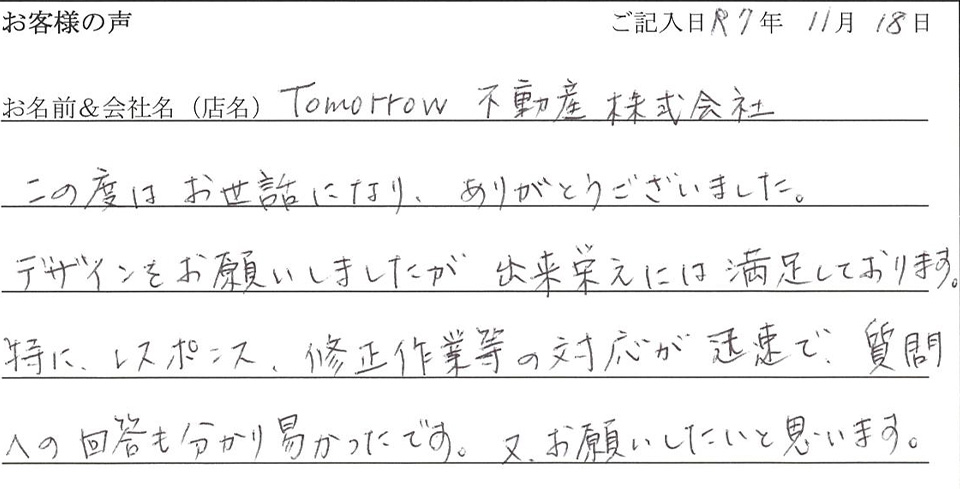 お客様の声 ご記入日R7年 11月 18日
お名前&会社名（店名） Tomorrow 不動産 株式会社
この度は お世話になり、ありがとうございました。
デザインをお願いしましたが 出来栄えには満足しております。
特に、レスポンス、修正作業等の対応が迅速で、質問
への回答も分かり易かったです。又、お願いしたいと思います。